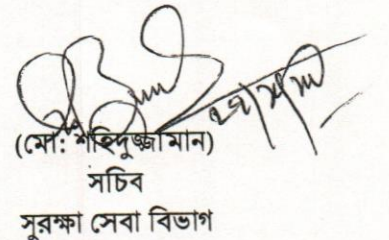 (মো: শহিদুজ্জামান)
সচিব
সুরক্ষা সেবা বিভাগ